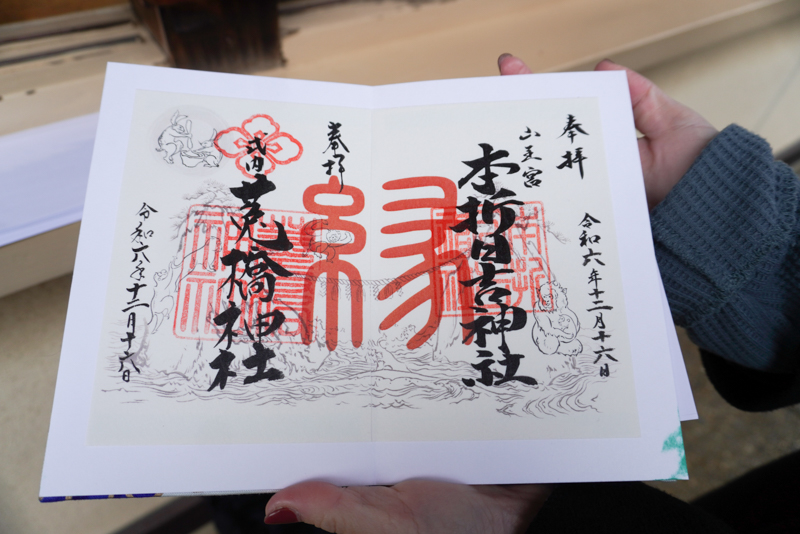 奉拝
令和六年十二月十六日
山王宮
本折日吉神社
縁
奉拝
式内
菟橋神社
令和六年十二月十六日